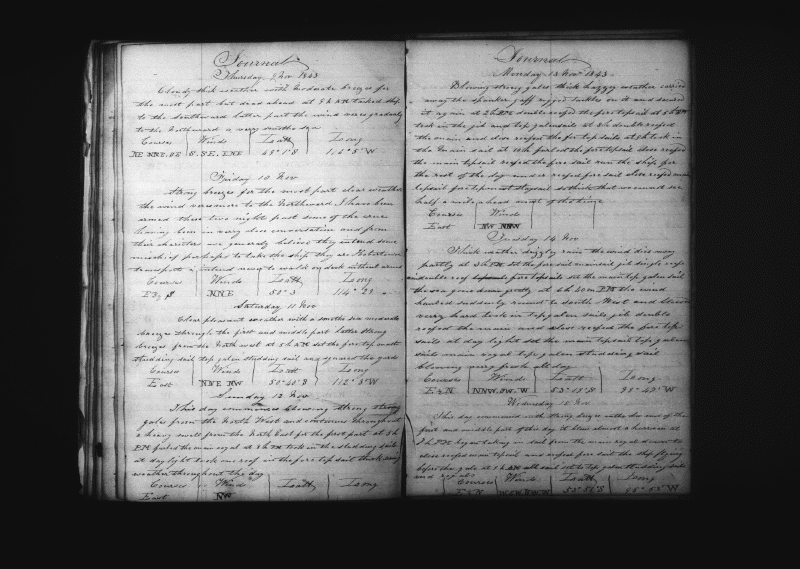 Journal
Thursday 9 Nov 1843
Cloudy thick weather with moderate breeze for
the most part but dead ahead at 8 h AM tacked ship
to the southward latter part the wind veered gradualy
to the Northward a very smoothe sea
Courses Winds Latt Long
NE NNE SE S. SE. ENE 49° 1' S 116° 5' W
Friday 10 Nov
Strong breezes for the most part clear weather
the wind veers more to the Northward I have been
armed these two night past some of the crew
having been in very close conversation and from
their charicters we generaly believe they intend some
mischief perhaps to take the ship they are
transports I intend never to walk on deck without arms
Courses Winds Latt Long
NNE 50° 3 114° 29
Saturday 11 Nov
Clear pleasant weather with a smoothe sea moderate
breeze through the first and middle part latter strong
breezes from the North west at 5 h AM set the fore top mast
studding sail top galen studding sail and squared the yards
Course Winds Latt Long
East NNE NW 50° 40' S 112° 5' W
Sunday 12 Nov
This day commences blowing strong strong
gales from the North West and continues throughout
a heavy swell from the North East for the first part at 8 h
PM furled the main royal at 3 h AM took in the studding sails
at day light took one reef in the fore top sail thick
weather throughout the day
Courses Winds Latt Long
East NW
Journal
Monday 13 Nov 1843
Blowing strong gales thick haggy weather carried
away the spanker gaff rigged tackles on it and secured
it again at 2 h AM double reefed the fore top sail at 5 h
took in the gib and top galen sails at 6 h double reefed
the main and close reefed the fore top sails at 8 h took in
the main sail at 10 h furled the fore top sail close reefed
the main top sail reefed the fore sail run the ship for
the rest of the day under reefed fore sail close reefed main
topsail fore top mast stay sail so thick that we cannot see
half a mile ahead most of the time
Courses Winds
East NW NNW
Tuesday 14 Nov
Thick weather drizzly rain the wind dies away
partly at 3 h PM set the fore sail main sail gib single reefs
double reef fore top sails set the main top galen sail
the sea gone down greatly at 6 h 20 m PM the wind
hauled suddenly round to South West and blows
very hard took in top galen sails gib double
reefed the main and close reefed the fore top
sails at day light set the main top sail top galen
sail main royal top galen studding sail
blowing very fresh all day
Courses Winds Latt Long
E½N NNW. SW. W 53° 13' S 98° 42' W
Wednesday 15 Nov
This day commences with strong breezes on the due end of the
first and middle part of this day it blows almost a hurrican at
8 h PM began taking in sail from the main royal down to
close reefed main top sail and reefed fore sail the ship flying
before the gale at 8 h AM all sail set to top galen studding sails
and royals
Courses Winds Latt Long
E½N 53° 56' S 95° 53' W